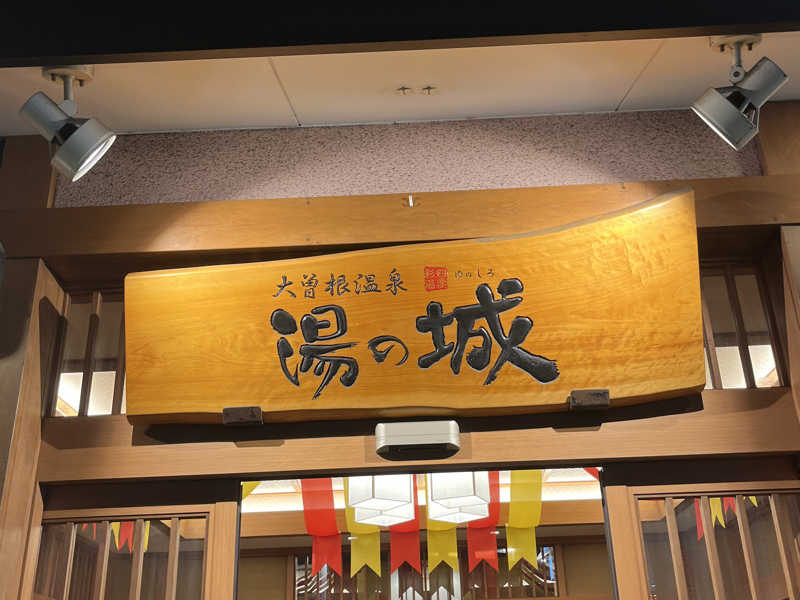 大曽根温泉
ゆのしろ
湯の城